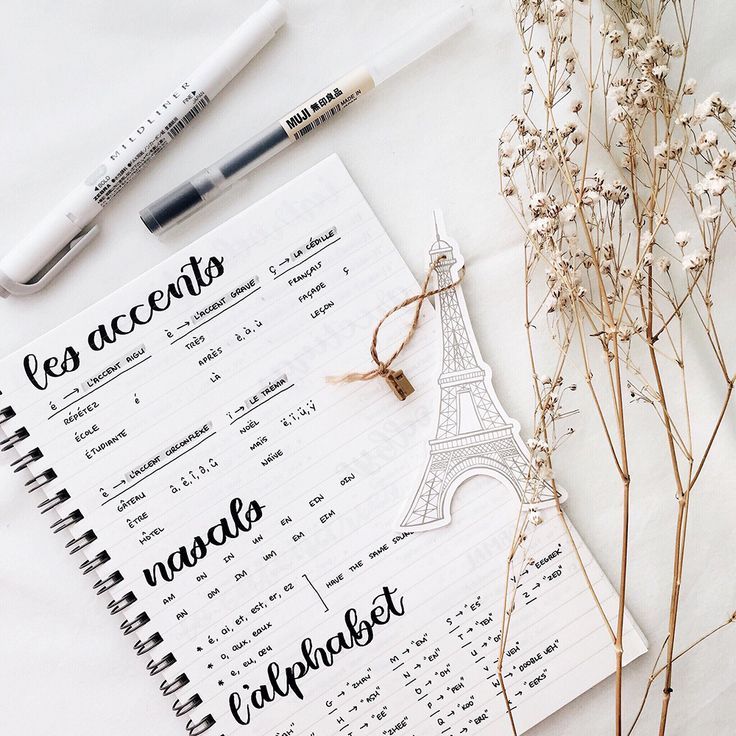 MILDLINER
BOLD
FINE
MUJI 無印良品
MADE IN
les accents
é → L'ACCENT AIGU
RÉPÉTEZ é
ÉCOLE
ÉTUDIANTE
è → L'ACCENT GRAVE
TRÈS è, à, ù
APRÈS
LÀ
ç → LA CÉDILLE
FRANÇAIS ç
FAÇADE
LEÇON
ê → L'ACCENT CIRCONFLEXE
GÂTEAU â, ê, î, ô, û
ÊTRE
HÔTEL
ï → LE TRÉMA
NOËL ë, ï, ü, ÿ
MAÏS
NAÏVE
nasals
AM ON IN UN EN EIN OIN
AN OM IM UM EM EIM
* é, ai, et, est, er, ez
* o, aux, eaux
* e, eu, œu
HAVE THE SAME SOUN
l'alphabet
G → "ZHAY"
H → "ASH"
"EE"
"ZHEE"
M → "EM"
N → "EN"
O → "OH"
P → "PEH"
Q → "KOO"
"ERR"
S → "ES"
T → "TEH"
U →
V → "VEH"
W → "DOOBLE VEH"
"EEKS"
Y → "EEGREK"
Z → "ZED"